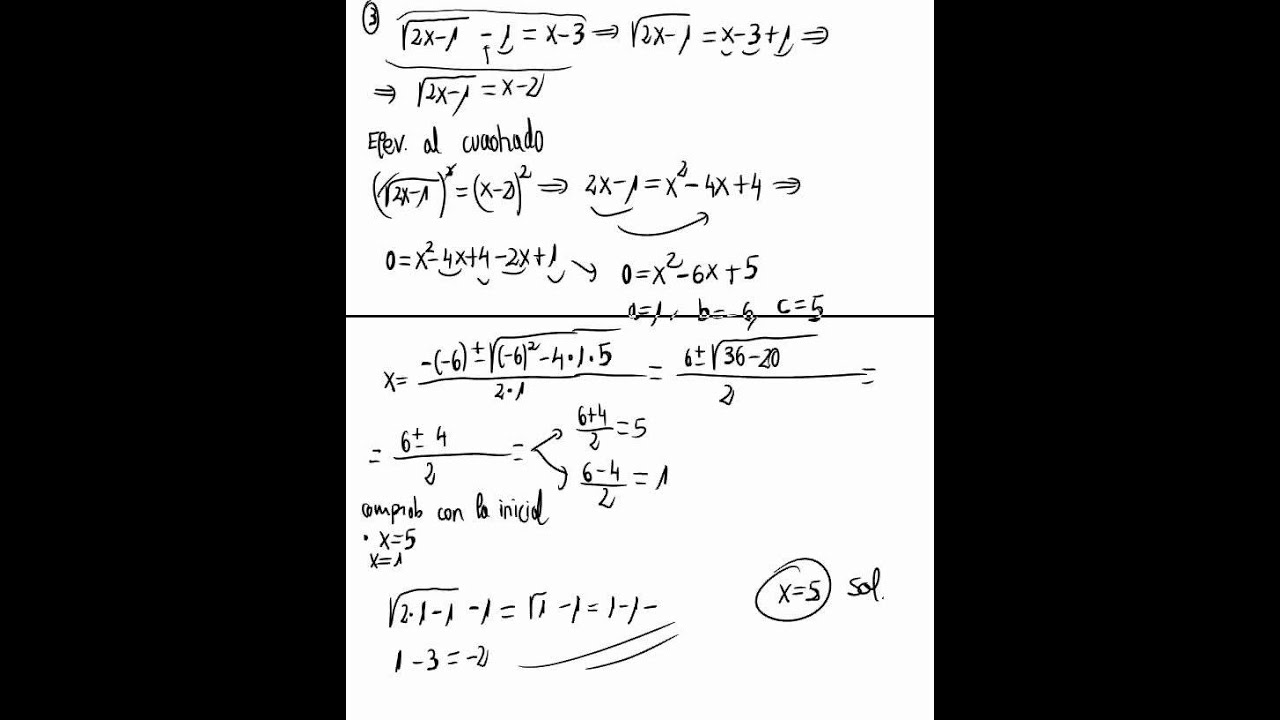 ③ √(2x-1) - 1 = x-3 ⇒ √(2x-1) = x-3+1 ⇒
⇒ √(2x-1) = x-2
Elev. al cuadrado
(√(2x-1))² = (x-2)² ⇒ 2x-1 = x²-4x+4 ⇒
0 = x²-4x+4-2x+1 ↘ 0 = x²-6x+5
a=1, b=-6, c=5
x = (-(-6) ± √((-6)²-4·1·5))/(2·1) = (6 ± √(36-20))/2 =
= (6 ± 4)/2 = < (6+4)/2 = 5
(6-4)/2 = 1
comprob con la inicial
· x=5
x=1
√(2·1-1) - 1 = √1 - 1 = 1-1-
1-3 = -2
x=5 sol.